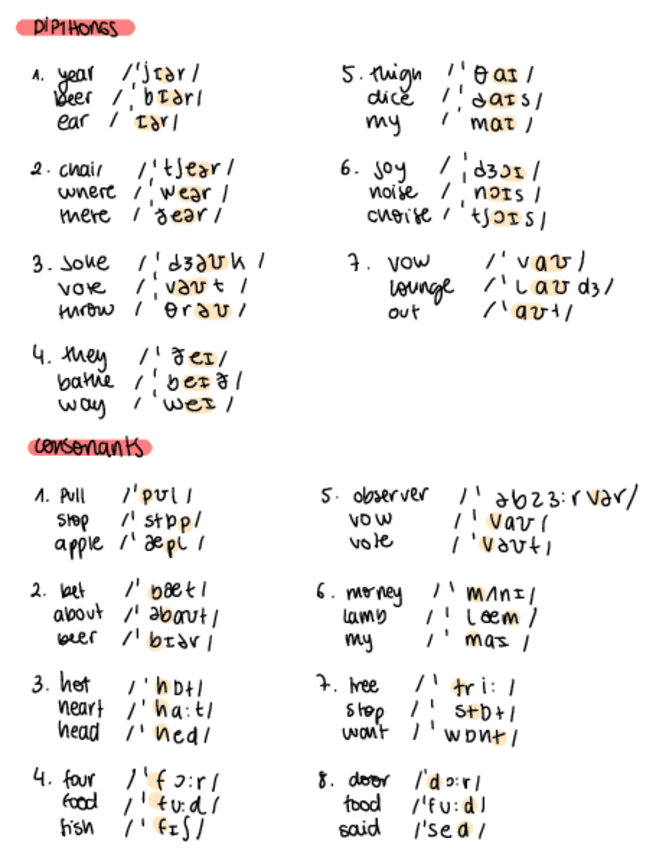 DIPTHONGS
1. year /'jɪər/
beer /'bɪər/
ear /'ɪər/
2. chair /'tʃeər/
where /'weər/
there /'ðeər/
3. joke /'dʒəʊk/
vote /'vəʊt/
throw /'θrəʊ/
4. they /'ðeɪ/
bathe /'beɪð/
way /'weɪ/
5. thigh /'θaɪ/
dice /'daɪs/
my /'maɪ/
6. joy /'dʒɔɪ/
noise /'nɔɪs/
choise /'tʃɔɪs/
7. vow /'vaʊ/
lounge /'laʊdʒ/
out /'aʊt/
consonants
1. Pull /'pʊl/
stop /'stɒp/
apple /'æpl/
2. bet /'bæt/
about /'əbaʊt/
beer /'bɪər/
3. hot /'hɒt/
heart /'ha:t/
head /'hed/
4. four /'fɔ:r/
food /'fu:d/
fish /'fɪʃ/
5. observer /'əbzɜ:rvər/
vow /'vaʊ/
vote /'vəʊt/
6. money /'mʌnɪ/
lamb /'læm/
my /'maɪ/
7. tree /'tri:/
stop /'stɒt/
want /'wɒnt/
8. door /'dɔ:r/
food /'fu:d/
said /'sed/